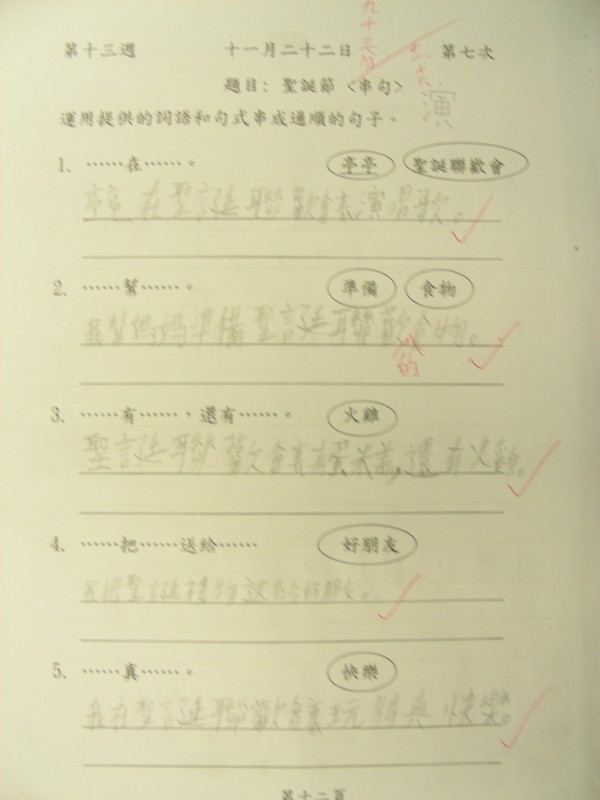 第十三週 十一月二十二日 第七次
題目：聖誕節〈串句〉
演
運用提供的詞語和句式串成通順的句子。
1. ……在……。 亭亭 聖誕聯歡會
亭亭在聖誕聯歡會表演唱歌。
2. ……幫……。 準備 食物
我幫媽媽準備聖誕聯歡會食物。
的
3. ……有……，還有……。 火雞
聖誕聯歡會有蛋 ，還有火雞。
4. ……把……送給…… 好朋友
我把聖誕禮物送給好朋友。
5. ……真……。 快樂
我在聖誕聯歡會 玩得真快樂。
第十二頁